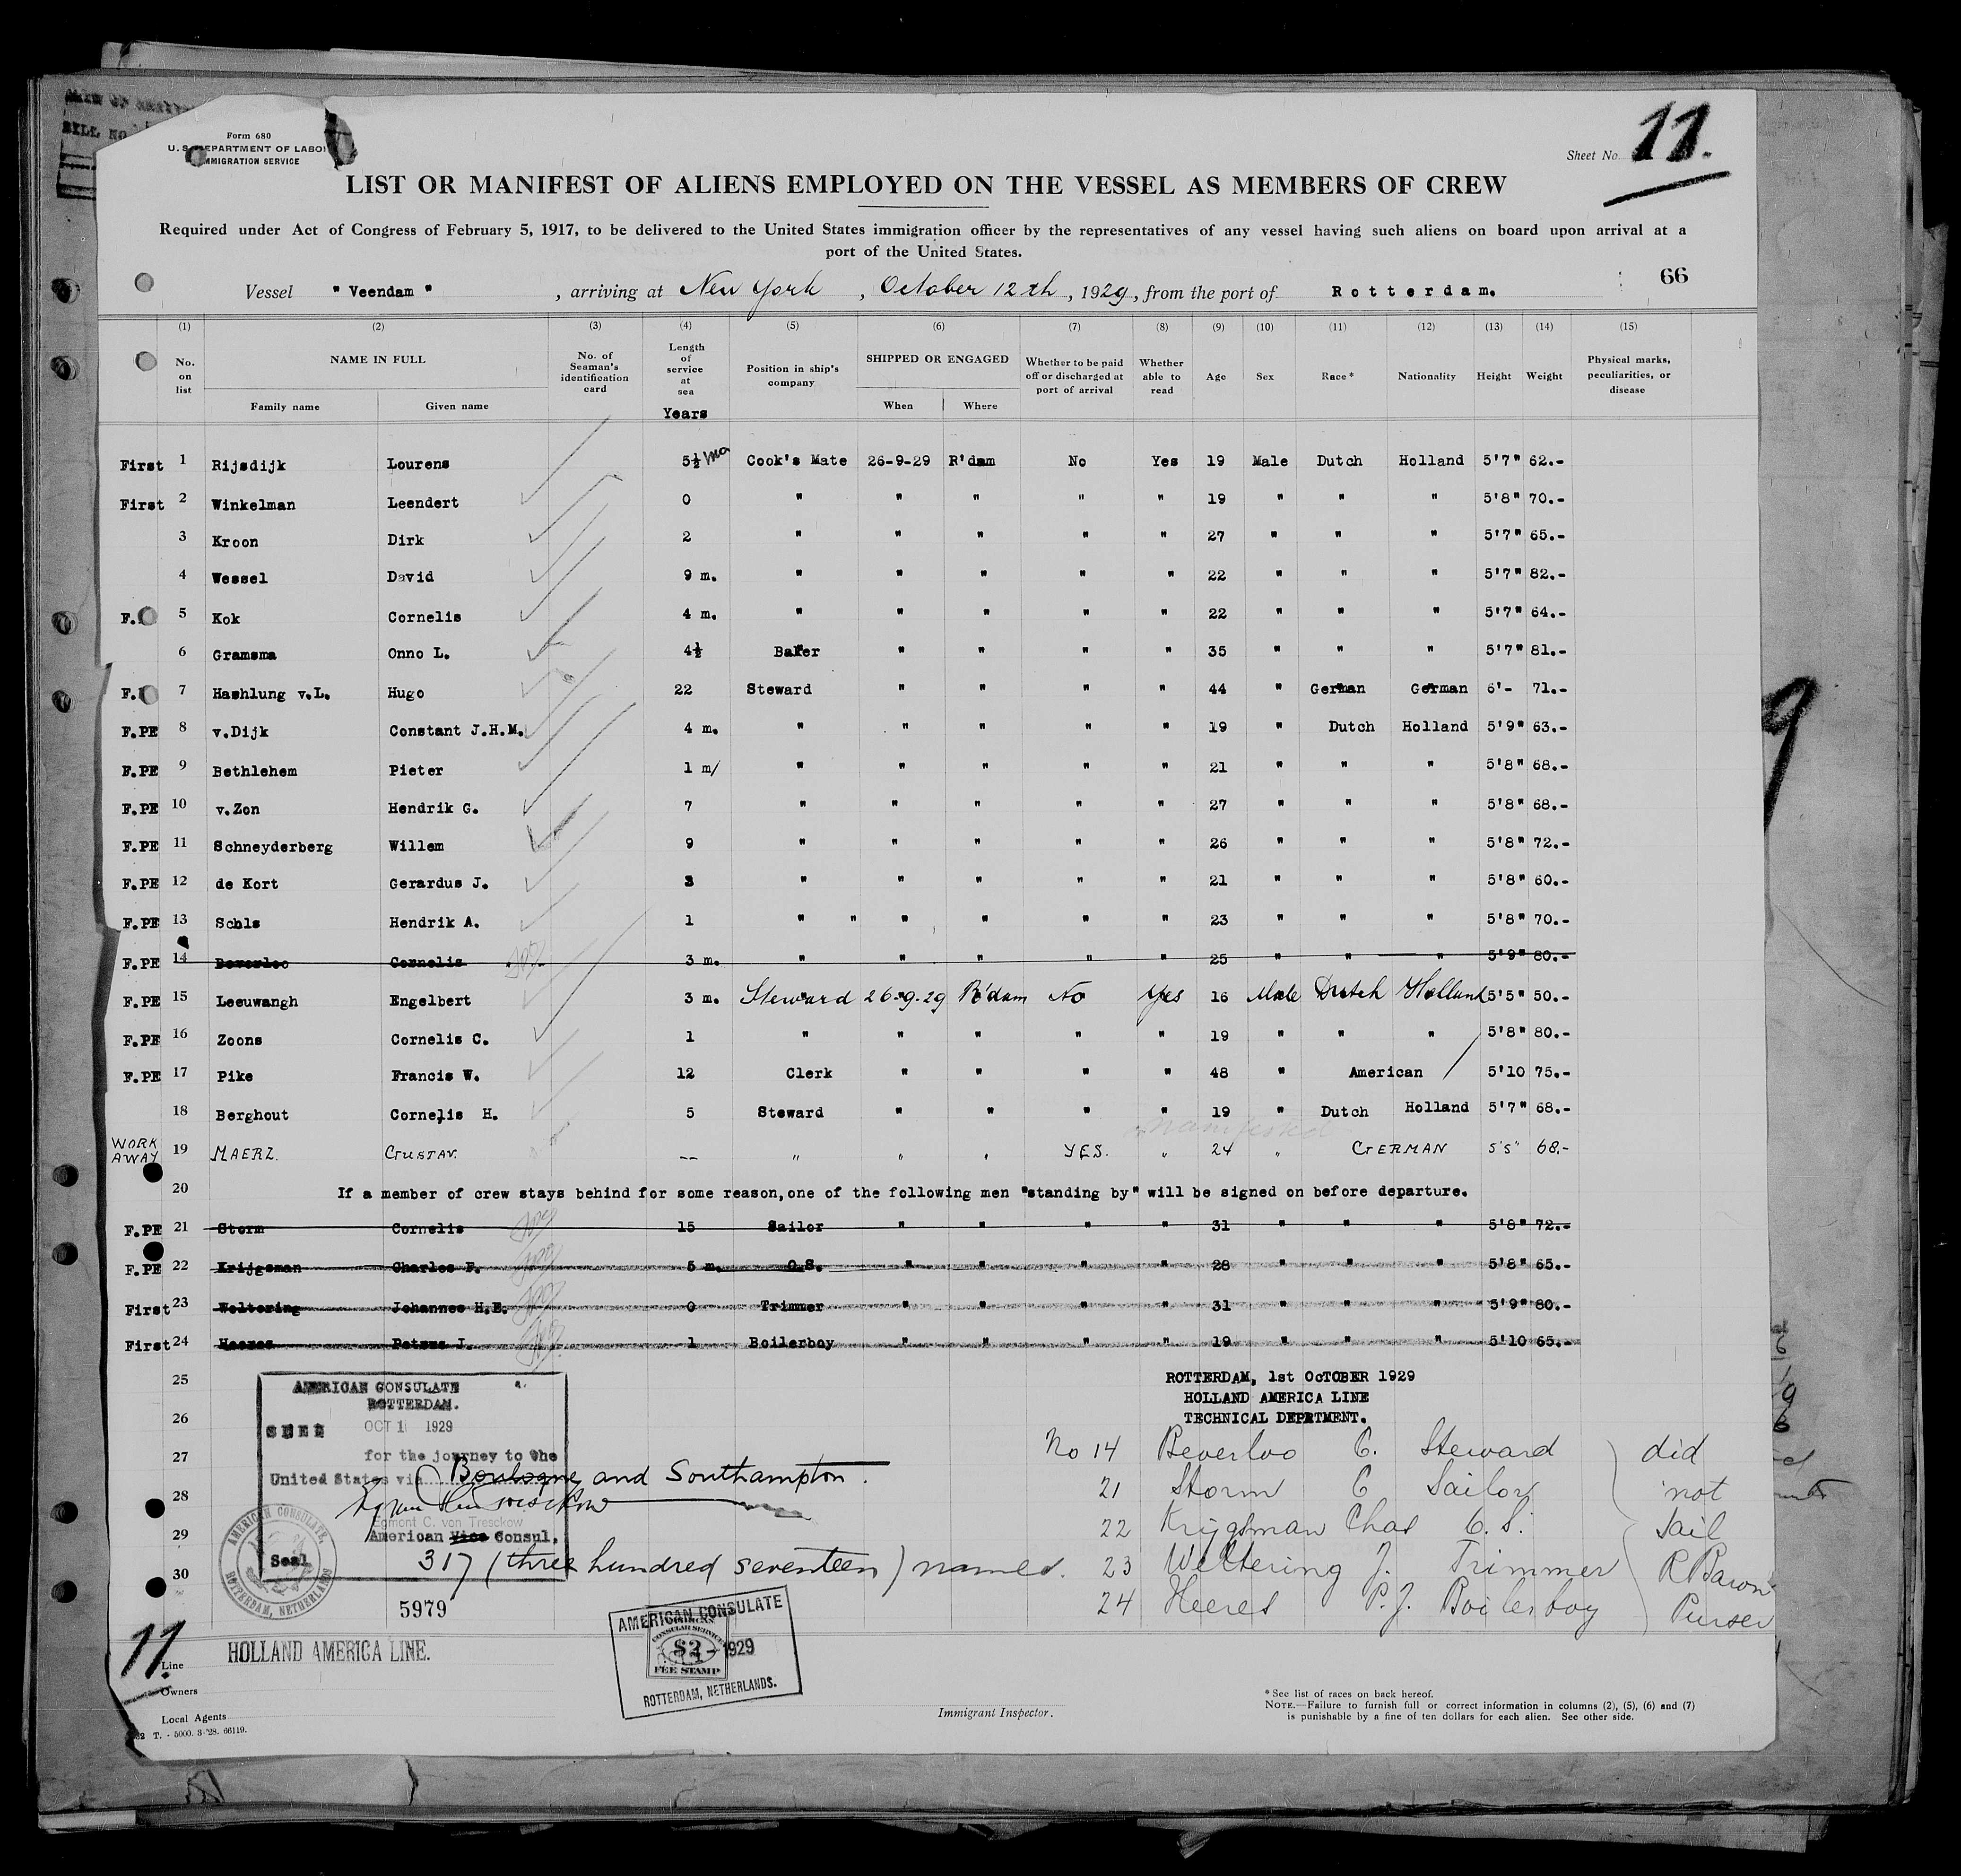 Form 680
U. S. DEPARTMENT OF LABOR
IMMIGRATION SERVICE
Sheet No. 11.
LIST OR MANIFEST OF ALIENS EMPLOYED ON THE VESSEL AS MEMBERS OF CREW
Required under Act of Congress of February 5, 1917, to be delivered to the United States immigration officer by the representatives of any vessel having such aliens on board upon arrival at a
port of the United States.
66
Vessel "Veendam", arriving at New York, October 12th, 1929, from the port of Rotterdam.
(1) (2) (3) (4) (5) (6) (7) (8) (9) (10) (11) (12) (13) (14) (15)
No. on list NAME IN FULL Family name Given name No. of Seaman's identification card Length of service at sea Years Position in ship's company SHIPPED OR ENGAGED When Where Whether to be paid off or discharged at port of arrival Whether able to read Age Sex Race* Nationality Height Weight Physical marks, peculiarities, or disease
First 1 Rijsdijk Lourens 5½ mo Cook's Mate 26-9-29 R'dam No Yes 19 Male Dutch Holland 5'7" 62.-
First 2 Winkelman Leendert 0 " " " " " 19 " " " 5'8" 70.-
3 Kroon Dirk 2 " " " " " 27 " " " 5'7" 65.-
4 Wessel David 9 m. " " " " " 22 " " " 5'7" 82.-
F. 5 Kok Cornelis 4 m. " " " " " 22 " " " 5'7" 64.-
6 Gramsma Onno L. 4½ Baker " " " " 35 " " " 5'7" 81.-
F. 7 Hashlung v.L. Hugo 22 Steward " " " " 44 " German German 6'- 71.-
F.PE 8 v.Dijk Constant J.H.M. 4 m. " " " " " 19 " Dutch Holland 5'9" 63.-
F.PE 9 Bethlehem Pieter 1 m/ " " " " " 21 " " " 5'8" 68.-
F.PE 10 v.Zon Hendrik G. 7 " " " " " 27 " " " 5'8" 68.-
F.PE 11 Schneyderberg Willem 9 " " " " " 26 " " " 5'8" 72.-
F.PE 12 de Kort Gerardus J. 3 " " " " " 21 " " " 5'8" 60.-
F.PE 13 Schls Hendrik A. 1 " " " " " " 23 " " " 5'8" 70.-
F.PE 14 Beverloo Cornelis 3 m. " " " " " 25 " " " 5'9" 80.-
F.PE 15 Leeuwangh Engelbert 3 m. Steward 26-9-29 R'dam No Yes 16 Male Dutch Holland 5'5" 50.-
F.PE 16 Zoons Cornelis C. 1 " " " " " 19 " " " 5'8" 80.-
F.PE 17 Pike Francis W. 12 Clerk " " " " 48 " American 5'10 75.-
18 Berghout Cornelis H. 5 Steward " " " " 19 " Dutch Holland 5'7" 68.-
WORK AWAY 19 MAERZ. GUSTAV. -- " " " YES. " 24 " GERMAN 5'5" 68.-
20 If a member of crew stays behind for some reason, one of the following men "standing by" will be signed on before departure.
F.PE 21 Storm Cornelis 15 Sailor " " " " 31 " " " 5'8" 72.-
F.PE 22 Krijgsman Charles F. 5 m. O.S. " " " " 28 " " " 5'8" 65.-
First 23 Weltering Johannes H.E. 0 Trimmer " " " " 31 " " " 5'9" 80.-
First 24 Heeres Petrus J. 1 Boilerboy " " " " 19 " " " 5'10 65.-
25
26
27
28
29
30
AMERICAN CONSULATE
ROTTERDAM.
SEEN OCT 1 1929
for the journey to the
United States via Boulogne and Southampton.
Egmont C. von Tresckow
American Vice Consul.
Seal
AMERICAN CONSULATE, ROTTERDAM, NETHERLANDS
317 (three hundred seventeen) names.
5979
ROTTERDAM, 1st OcTOBER 1929
HOLLAND AMERICA LINE
TECHNICAL DEPRTMENT.
No 14 Beverloo C. Steward did
21 Storm C Sailor not
22 Krijgsman Chas O.S. sail
23 Weltering J. Trimmer R Baron
24 Heeres P.J. Boilerboy Purser
AMERICAN CONSULATE
CONSULAR SERVICE
$2
FEE STAMP
1929
ROTTERDAM, NETHERLANDS.
11.
Line HOLLAND AMERICA LINE.
Owners
Local Agents
T. - 5000. 3-'28. 66119.
Immigrant Inspector.
* See list of races on back hereof.
NOTE.—Failure to furnish full or correct information in columns (2), (5), (6) and (7)
is punishable by a fine of ten dollars for each alien. See other side.